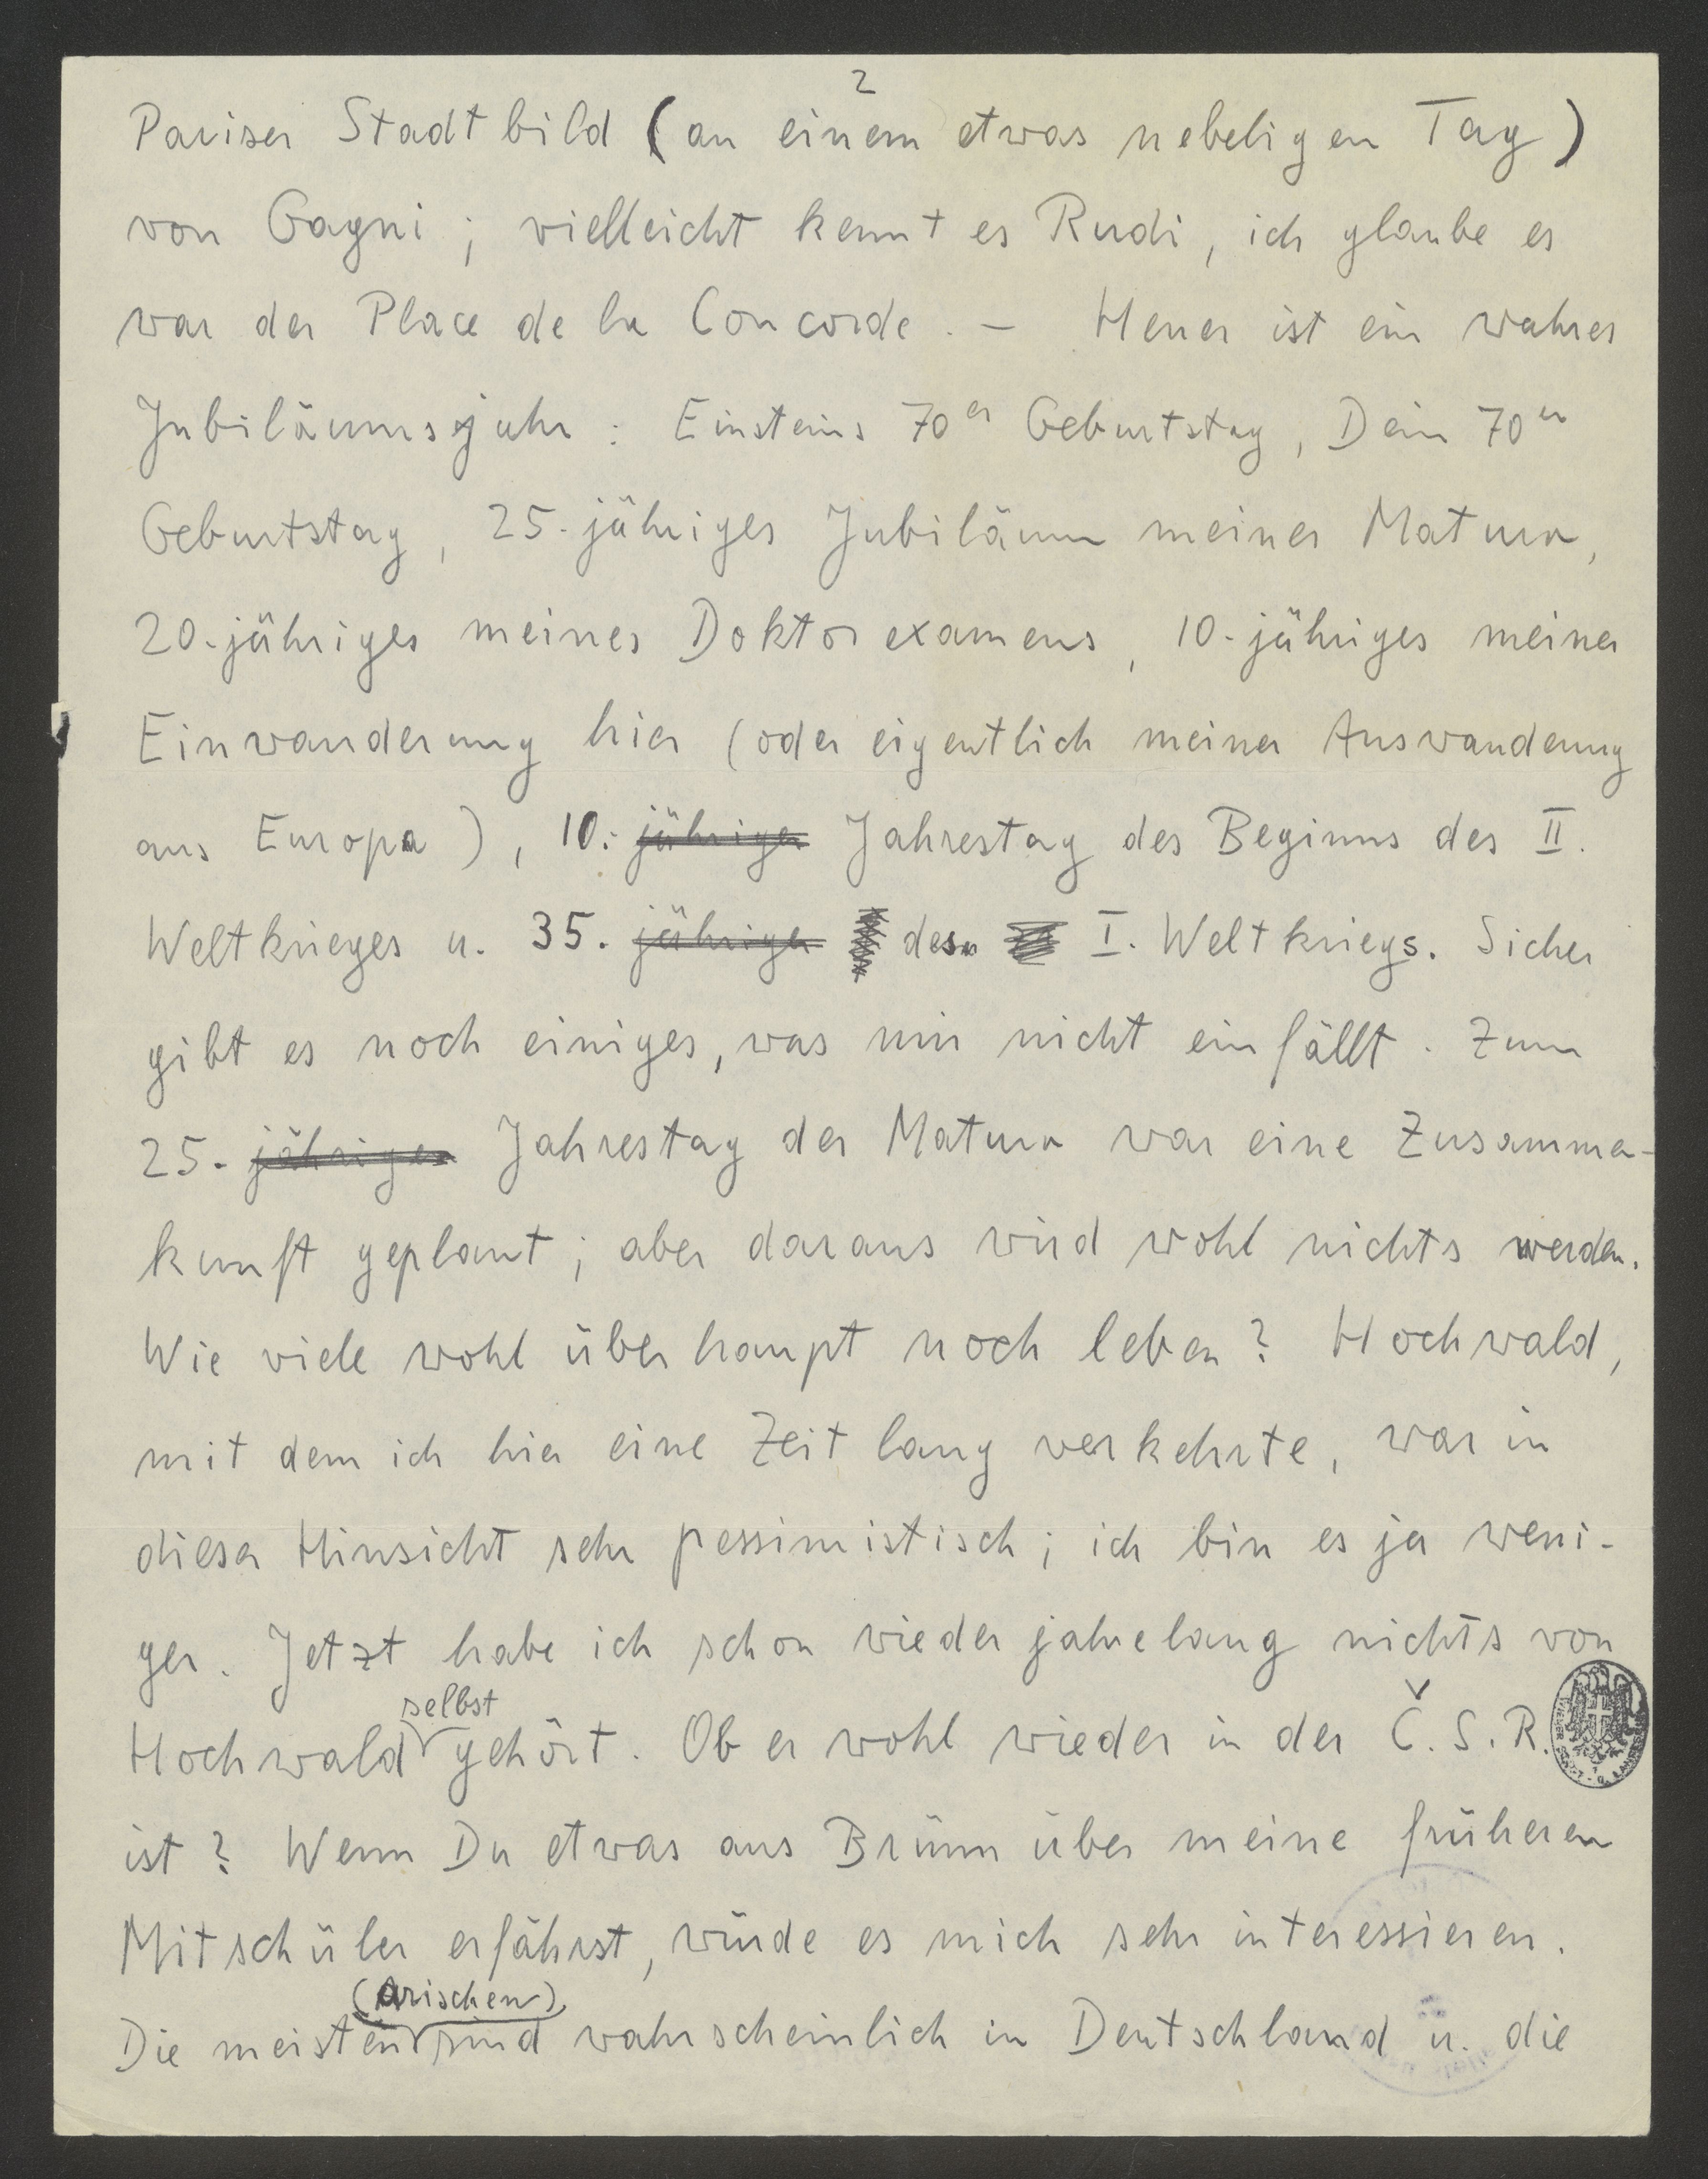 2
Pariser Stadtbild (an einem etwas nebeligen Tag)
von Gagni; vielleicht kennt es Rudi, ich glaube es
war der Place de la Concorde. – Heuer ist ein wahres
Jubiläumsjahr: Einsteins 70er Geburtstag, Dein 70er
Geburtstag, 25-jähriges Jubiläum meiner Matura,
20-jähriges meines Doktorexamens, 10-jähriges meiner
Einwanderung hier (oder eigentlich meiner Auswanderung
aus Europa), 10. jähriger Jahrestag des Beginns des II.
Weltkrieges u. 35. jähriger des I. Weltkriegs. Sicher
gibt es noch einiges, was mir nicht einfällt. Zum
25. jährigen Jahrestag der Matura war eine Zusammen-
kunft geplant; aber daraus wird wohl nichts werden.
Wie viele wohl überhaupt noch leben? Hochwald,
mit dem ich hier eine Zeit lang verkehrte, war in
dieser Hinsicht sehr pessimistisch; ich bin es ja weni-
ger. Jetzt habe ich schon wieder jahrelang nichts von
Hochwald selbst gehört. Ob er wohl wieder in der Č.S.R.
ist? Wenn Du etwas aus Brünn über meine früheren
Mitschüler erfährst, würde es mich sehr interessieren.
Die meisten (Arischen) sind wahrscheinlich in Deutschland u. die